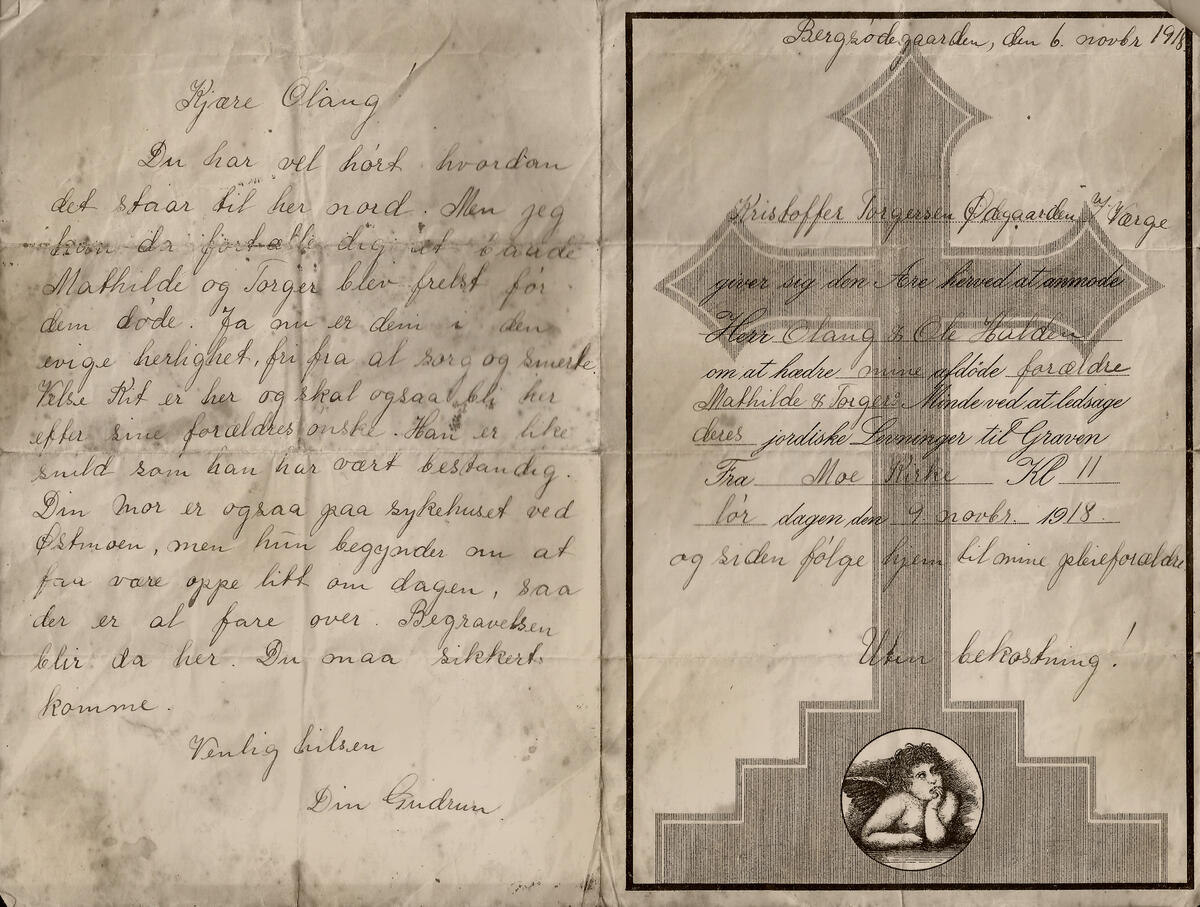 Kjære Olaug!
Du har vel hørt hvordan
det staar til her nord. Men jeg
kan da fortælle dig at baade
Mathilde og Torger blev frelst før
dem døde. Ja nu er dem i den
evige herlighet, fri fra al sorg og smerte.
Vesle Kit er her og skal ogsaa bli her
efter sine forældres ønske. Han er like
snild som han har vært bestandig.
Din mor er ogsaa paa sykehuset ved
Østmoen, men hun begynder nu at
faa være oppe litt om dagen, saa
der er al fare over. Begravelsen
blir da her. Du maa sikkert
komme.
Venlig hilsen
Din Gudrun.
Bergsødegaarden, den 6. novbr 1918
Kristoffer Torgersen Ødegaarden Værge
giver sig den Ære herved at anmode
Herr Olaug & Ole Halden
om at hædre mine afdøde forældre
Mathilde & Torgers Minde ved at ledsage
deres jordiske Levninger til Graven
Fra Moe Kirke Kl 11
lør dagen den 9. novbr. 1918.
og siden følge hjem til mine pleieforældre
Uten bekostning!